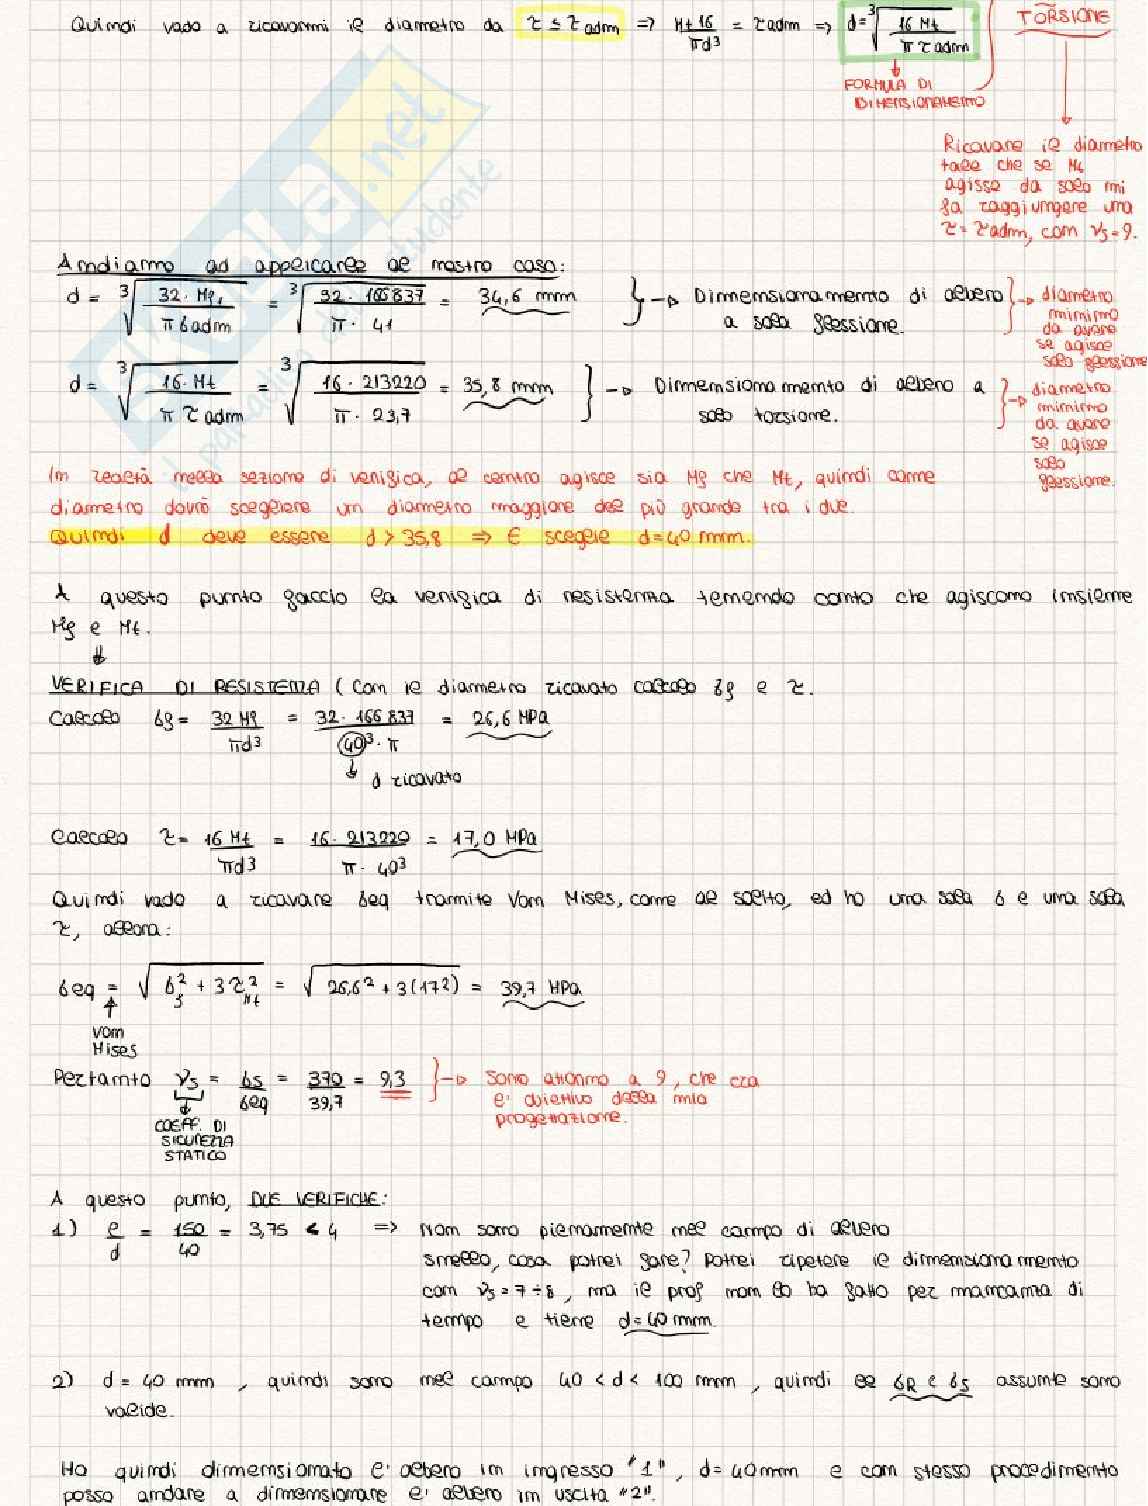 Quindi vado a ricavarmi il diametro da τ ≤ τ adm => Mt 16 / πd³ = τ adm => d = ³√(16 Mt / π τ adm)
TORSIONE
FORMULA DI
DIMENSIONAMENTO
Ricavare il diametro
tale che se Mt
agisse da solo mi
fa raggiungere una
τ = τ adm, con νs = 9.
Andiamo ad applicarle al nostro caso:
d = ³√(32 · Mf, / π σ adm) = ³√(32 · 166837 / π · 41) = 34,6 mm } → Dimensionamento di albero
a sola flessione.
} → diametro
minimo
da avere
se agisce
solo flessione
d = ³√(16 · Mt / π τ adm) = ³√(16 · 213220 / π · 23,7) = 35,8 mm } → Dimensionamento di albero a
solo torsione.
} → diametro
minimo
da avere
se agisce
solo
flessione.
In realtà nella sezione di verifica, al centro agisce sia Mf che Mt, quindi come
diametro dovrò scegliere un diametro maggiore del più grande tra i due.
Quindi d deve essere d > 35,8 => E scegle d = 40 mm.
A questo punto faccio la verifica di resistenza tenendo conto che agiscono insieme
Mf e Mt.
VERIFICA DI RESISTENZA ( Con il diametro ricavato calcolo σf e τ.
Calcolo σf = 32 Mf / πd³ = 32 · 166837 / 40³ · π = 26,6 MPa
d ricavato
Calcolo τ = 16 Mt / πd³ = 16 · 213220 / π · 40³ = 17,0 MPa
Quindi vado a ricavare σeq tramite Von Mises, come al solito, ed ho una sola σ e una sola
τ, allora:
σeq = √(σf² + 3τMt²) = √(26,6² + 3(17²)) = 39,7 MPa
Von
Mises
Pertanto νs = σs / σeq = 370 / 39,7 = 9,3 } → Sono attorno a 9, che era
l'obiettivo della mia
progettazione.
COEFF. DI
SICUREZZA
STATICO
A questo punto, DUE VERIFICHE:
1) l / d = 150 / 40 = 3,75 < 4 => Non sono pienamente nel campo di albero
snello, cosa potrei fare? Potrei ripetere il dimensionamento
con νs = 7 ÷ 8, ma il prof non lo ha fatto per mancanza di
tempo e tiene d = 40 mm
2) d = 40 mm, quindi sono nel campo 40 < d < 100 mm, quindi le σR e σs assunte sono
valide.
Ho quindi dimensionato l'albero in ingresso "1", d = 40 mm e con stesso procedimento
posso andare a dimensionare l'albero in uscita "2".